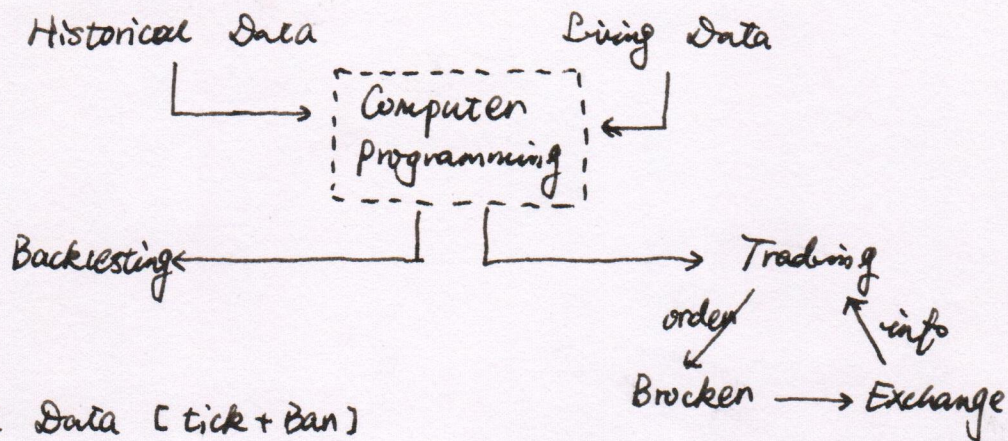 Historical Data
Living Data
Computer
Programming
Backtesting
Trading
order
info
Brocker
Exchange
Data [tick + Bar]